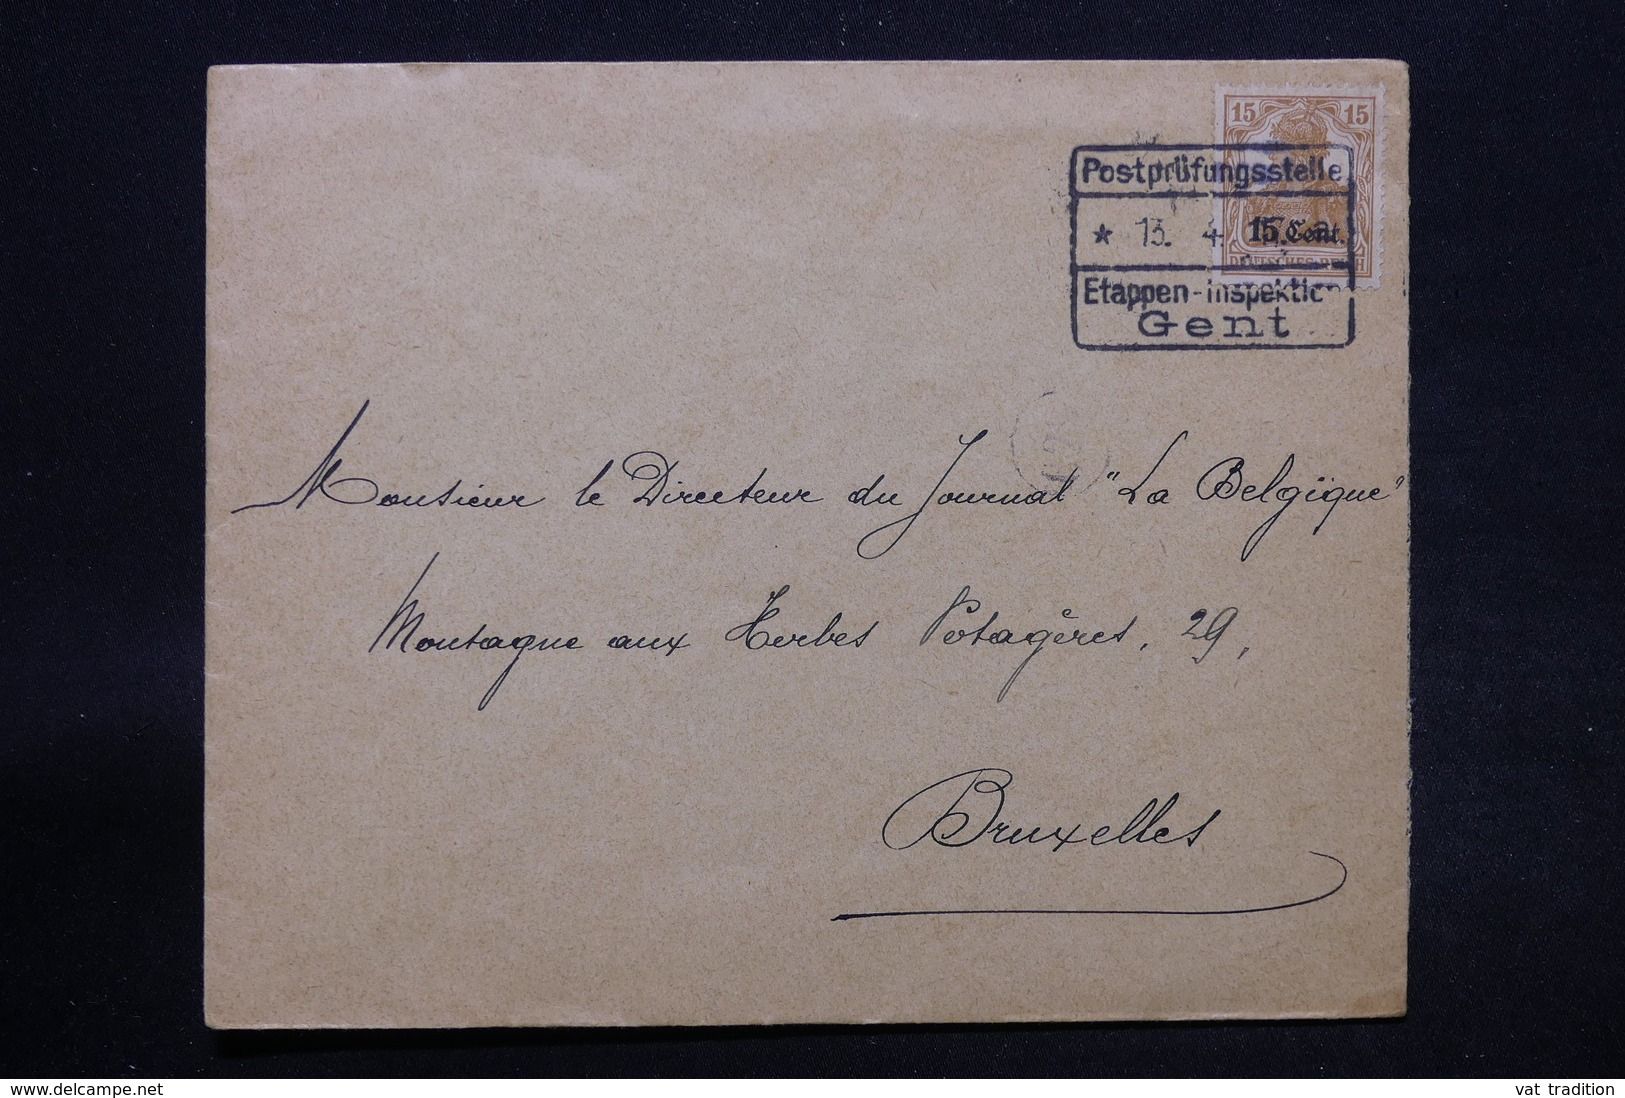 15 15
Postprüfungsstelle
* 13. 4.
15 Cent.
DEUTSCHES REICH
Etappen-Inspektio
Gent
Monsieur le Directeur du Journal "La Belgique"
Montagne aux Herbes Potagères, 29,
Bruxelles
delcampe.net
vat tradition